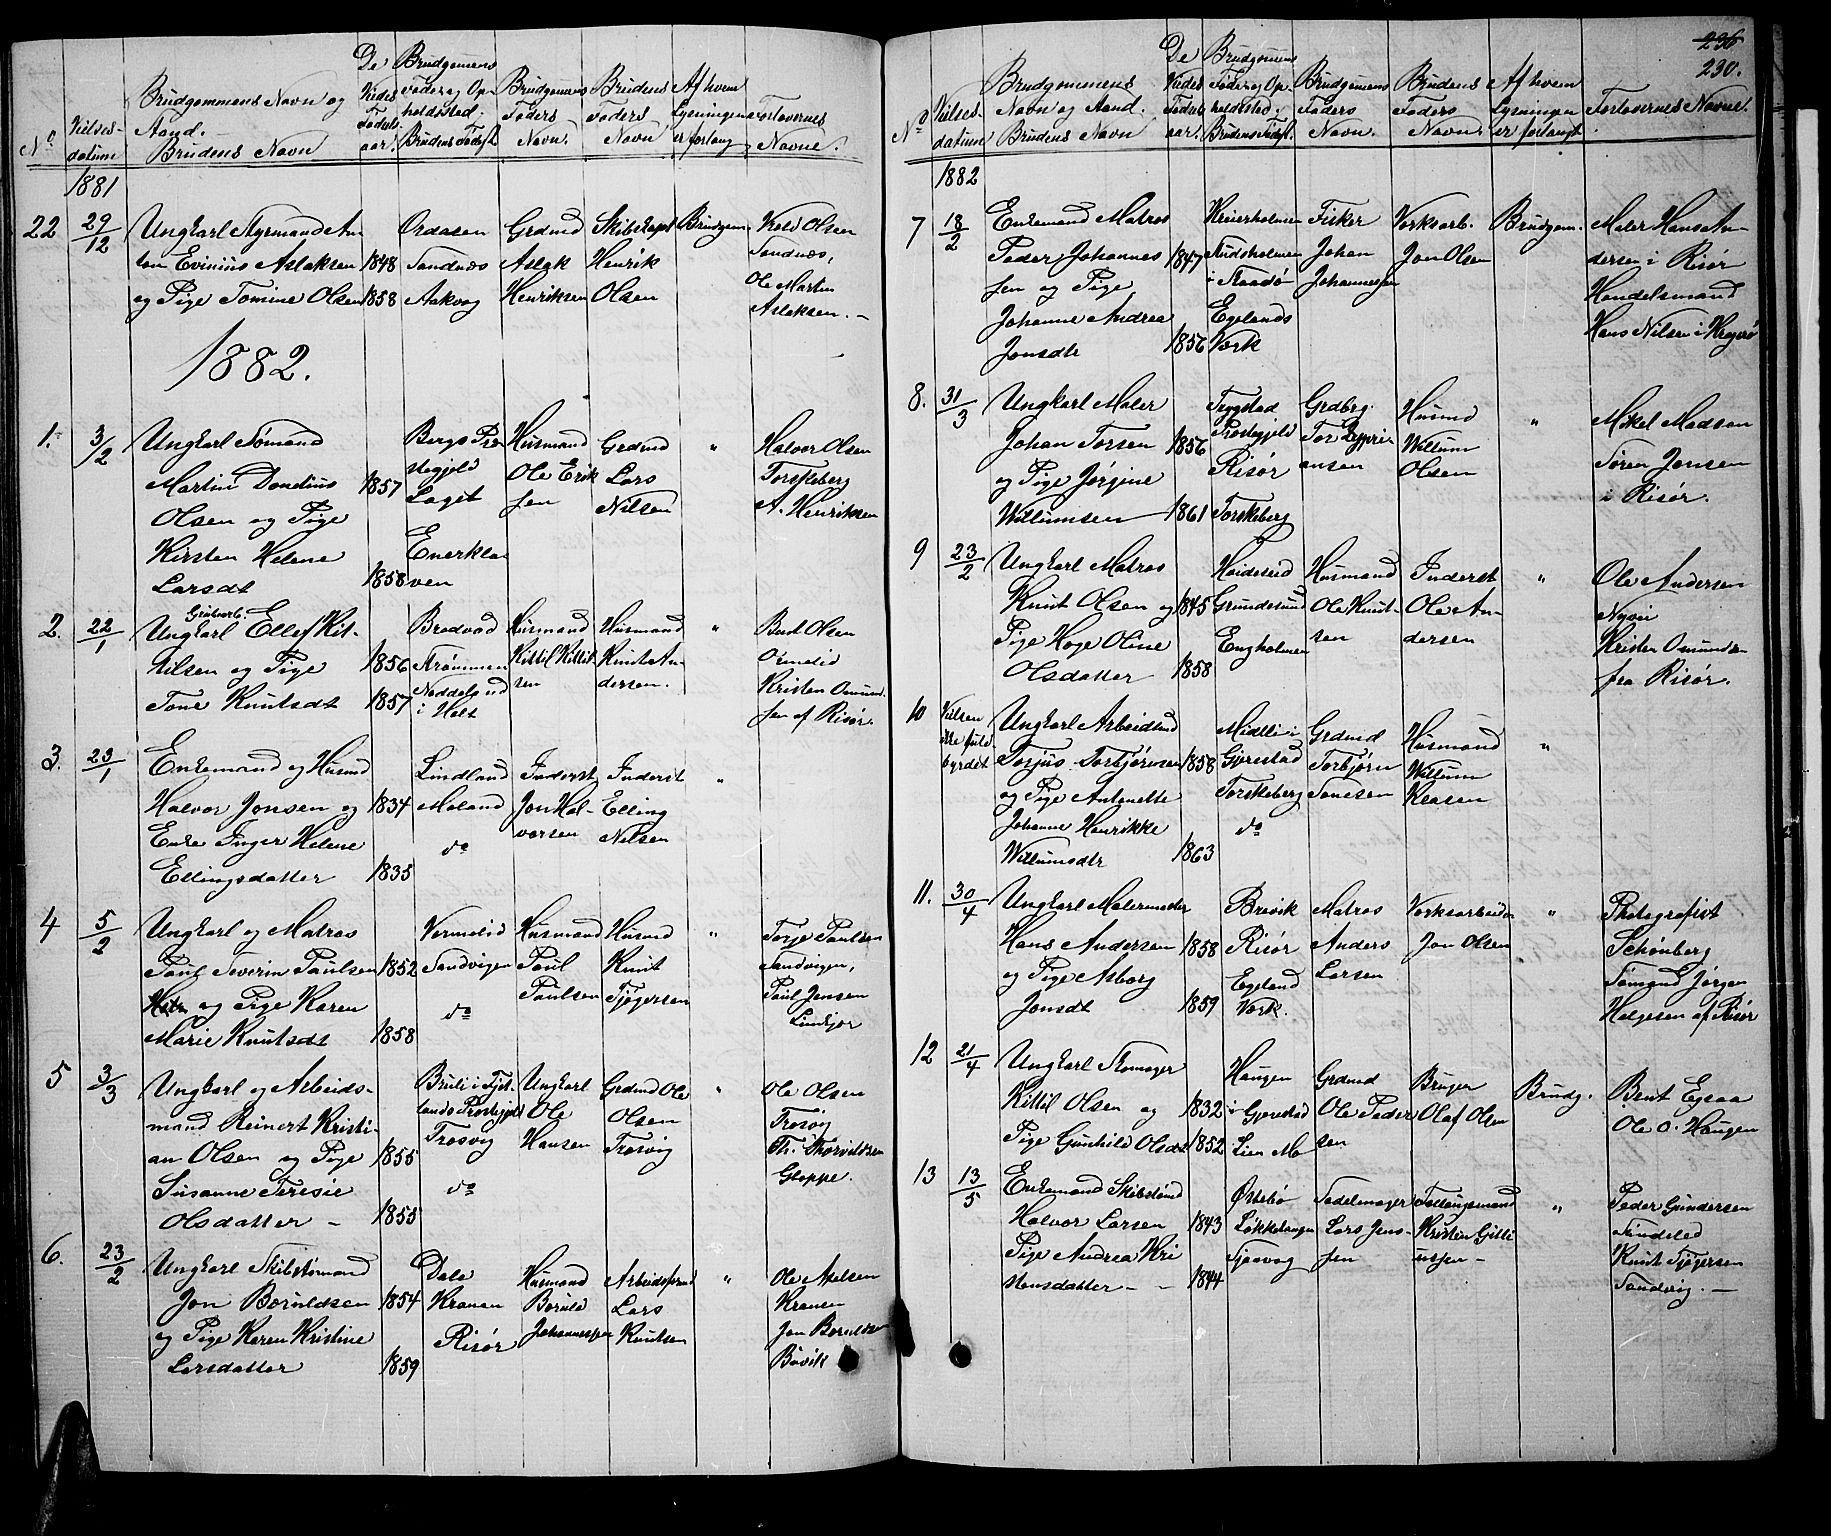 No
Vielses-
datum
Brudgommens Navn og
Stand.
Brudens Navn
De
Viedes
Føde
aar.
Brudgomens
Føde og Op-
holdssted,
Brudens Fødest.
Brudgomens
Faders
Navn.
Brudens
Faders
Navn
Af hvem
Lysningen
er forlang
Forlovernes
Navne.
1881
22
29/12
Ungkarl Styrmand An-
ton Evinius Aslaksen 1848
og Pige Tomine Olsen 1858
Ordasen
Sandnæs
Aakvog
Grdmd
Aslak
Henriksen
Skibskapt
Henrik
Olsen
Brudgom.
Keld Olsen
Sandnæs,
Ole Martin
Aslaksen. –
1882.
1.
3/2
Ungkarl Sømand
Martin Donelius 1857
Olsen og Pige
Kirsten Helene
Larsdt 1858
Bergs Præ
stegjeld
Laget
Enerkla
ven
Husmand
Ole Erik
sen
Grdmd
Lars
Nilsen
"
Halvor Olsen
Torskeberg
A. Henriksen
2.
22/1
Grubearb.
Ungkarl Ellef Kit-
tilsen og Pige 1856
Tone Knutsdt 1857
Bredvad
Strømmen
Noddeland
i Holt
Husmand
Kittil Kittil-
sen
Husmand
Knut An-
dersen.
"
Bent Olsen
Ormelid
Kristen Omund-
sen af Risør.
3.
23/1
Enkemand og Husmd
Halvor Jonsen og 1834
Enke Inger Helene
Ellingsdatter 1835
Lindland
Moland
do
Inderst
Jon Hal-
vorsen
Inderst
Elling
Nilsen
"
4
5/2
Ungkarl og Matros
Paul Severin Paulsen 1852
og Pige Karen
Marie Knutsdt 1858
Vormelid
Sandvigen
do
Husmand
Paul
Paulsen
Husmd
Knut
Tjøgersen
"
Torje Paulsen
Sandvigen,
Paul Jensen
Lindkjær
5
3/3
Ungkarl og Arbeids-
mand Reinert Kristi-
an Olsen og Pige 1855
Susanne Teresie
Olsdatter – 1855
Bruli i Tjøl-
lands Prestgjeld
Trosvig
do
Ungkarl
Ole
Hansen
Grdmd Ole
Olsen
Trosvig
"
Ole Olsen
Trosvig
Th. Thorvildsen
Gloppe.
6.
23/2
Ungkarl Skibstømmd
Jon Boruldsen 1854
og Pige Karen Kristine
Larsdatter 1859
Dale
Kranen
Risør
Husmand
Boruld
Johannessen
Arbeidsformd
Lars
Knutsen
"
Ole Axelsen
Kranen
Jon Boruldsen
Bøvik
236
230.
No
Vielses-
datum
Brudgommens
Navn og Stand.
Brudens Navn
De
Viedes
Føde
aar.
Brudgomens
Føde og Op-
holdssted,
Brudens Fødest.
Brudgomens
Faders
Navn.
Brudens
Faders
Navn.
Af hvem
Lysningen
er forlangt
Forlovernes Navne.
1882
7
18/2
Enkemand Matros
Peder Johannes 1847
sen og Pige
Johanne Andrea
Jonsdtr 1856
Krierholmen
i Skaadø
Egelands
Værk
Fisker
Johan
Johannessen
Værksarb.
Jon Olsen
Brudgom.
Maler Hans An-
dersen i Risør
Handelsmand
Hans Nilsen i Kragerø
8.
31/3
Ungkarl Maler
Johan Torsen 1856
og Pige Jørgine
Willumsen 1861
Trygstad
Prestegjeld
Risør
Torskeberg
Grdbrg.
Tor Zypri-
ansen
Husmd
Willum
Olsen
"
Mikel Madsen
Søren Jensen
i Risør.
9
23/2
Ungkarl Matros
Knut Olsen og 1845
Pige Hage Oline
Olsdatter 1858
Heidesrd
Grundesund
Engholmen
Husmand
Ole Knut-
sen
Inderst
Ole An-
dersen
"
Ole Andersen
Kristen Omunds
fra Risør.
10
Vielsen
ikke fuld
byrdet
Ungkarl Arbeidsmd
Torjus Torbjørnsen 1858
og Pige Antonette
Johanne Henrikke
Willumsdtr 1863
Midtli i
Gjerestad
Torskeberg
do
Grdmd
Torbjørn
Tonesen
Husmand
Willum
Klasen
"
11.
30/4
Ungkarl Malermester
Hans Andersen 1858
og Pige Asborg
Jonsdt 1859
Brevik
Risør
Egeland
Værk.
Matros
Anders
Larsen
Værksarbeider
Jon Olsen
"
Photografist
Schønberg
Sømand Jørgen
Helgesen af Risør
12
21/4
Ungkarl Skomager
Kittil Olsen og 1832
Pige Gunhild Olsdt 1852
Haugen
i Gjerestad
Lien Mo
Grdmd
Ole Peder
sen
Bruger
Olaf Olsen
Brudg.
Bent Egsaa
Ole O. Haugen
13
13/5
Enkemand Skibstømd
Halvor Larsen 1843
Pige Andrea Kri
stensdatter – – 1844
Østebø
Løkkehaugen
Sjøavog
Sadelmager
Lars Jens-
sen
Fattigmand
Kristen Gitti
ussen –
"
Peder Gundersen
Sindsled
Knut Tjøgersen
Sandvig. –